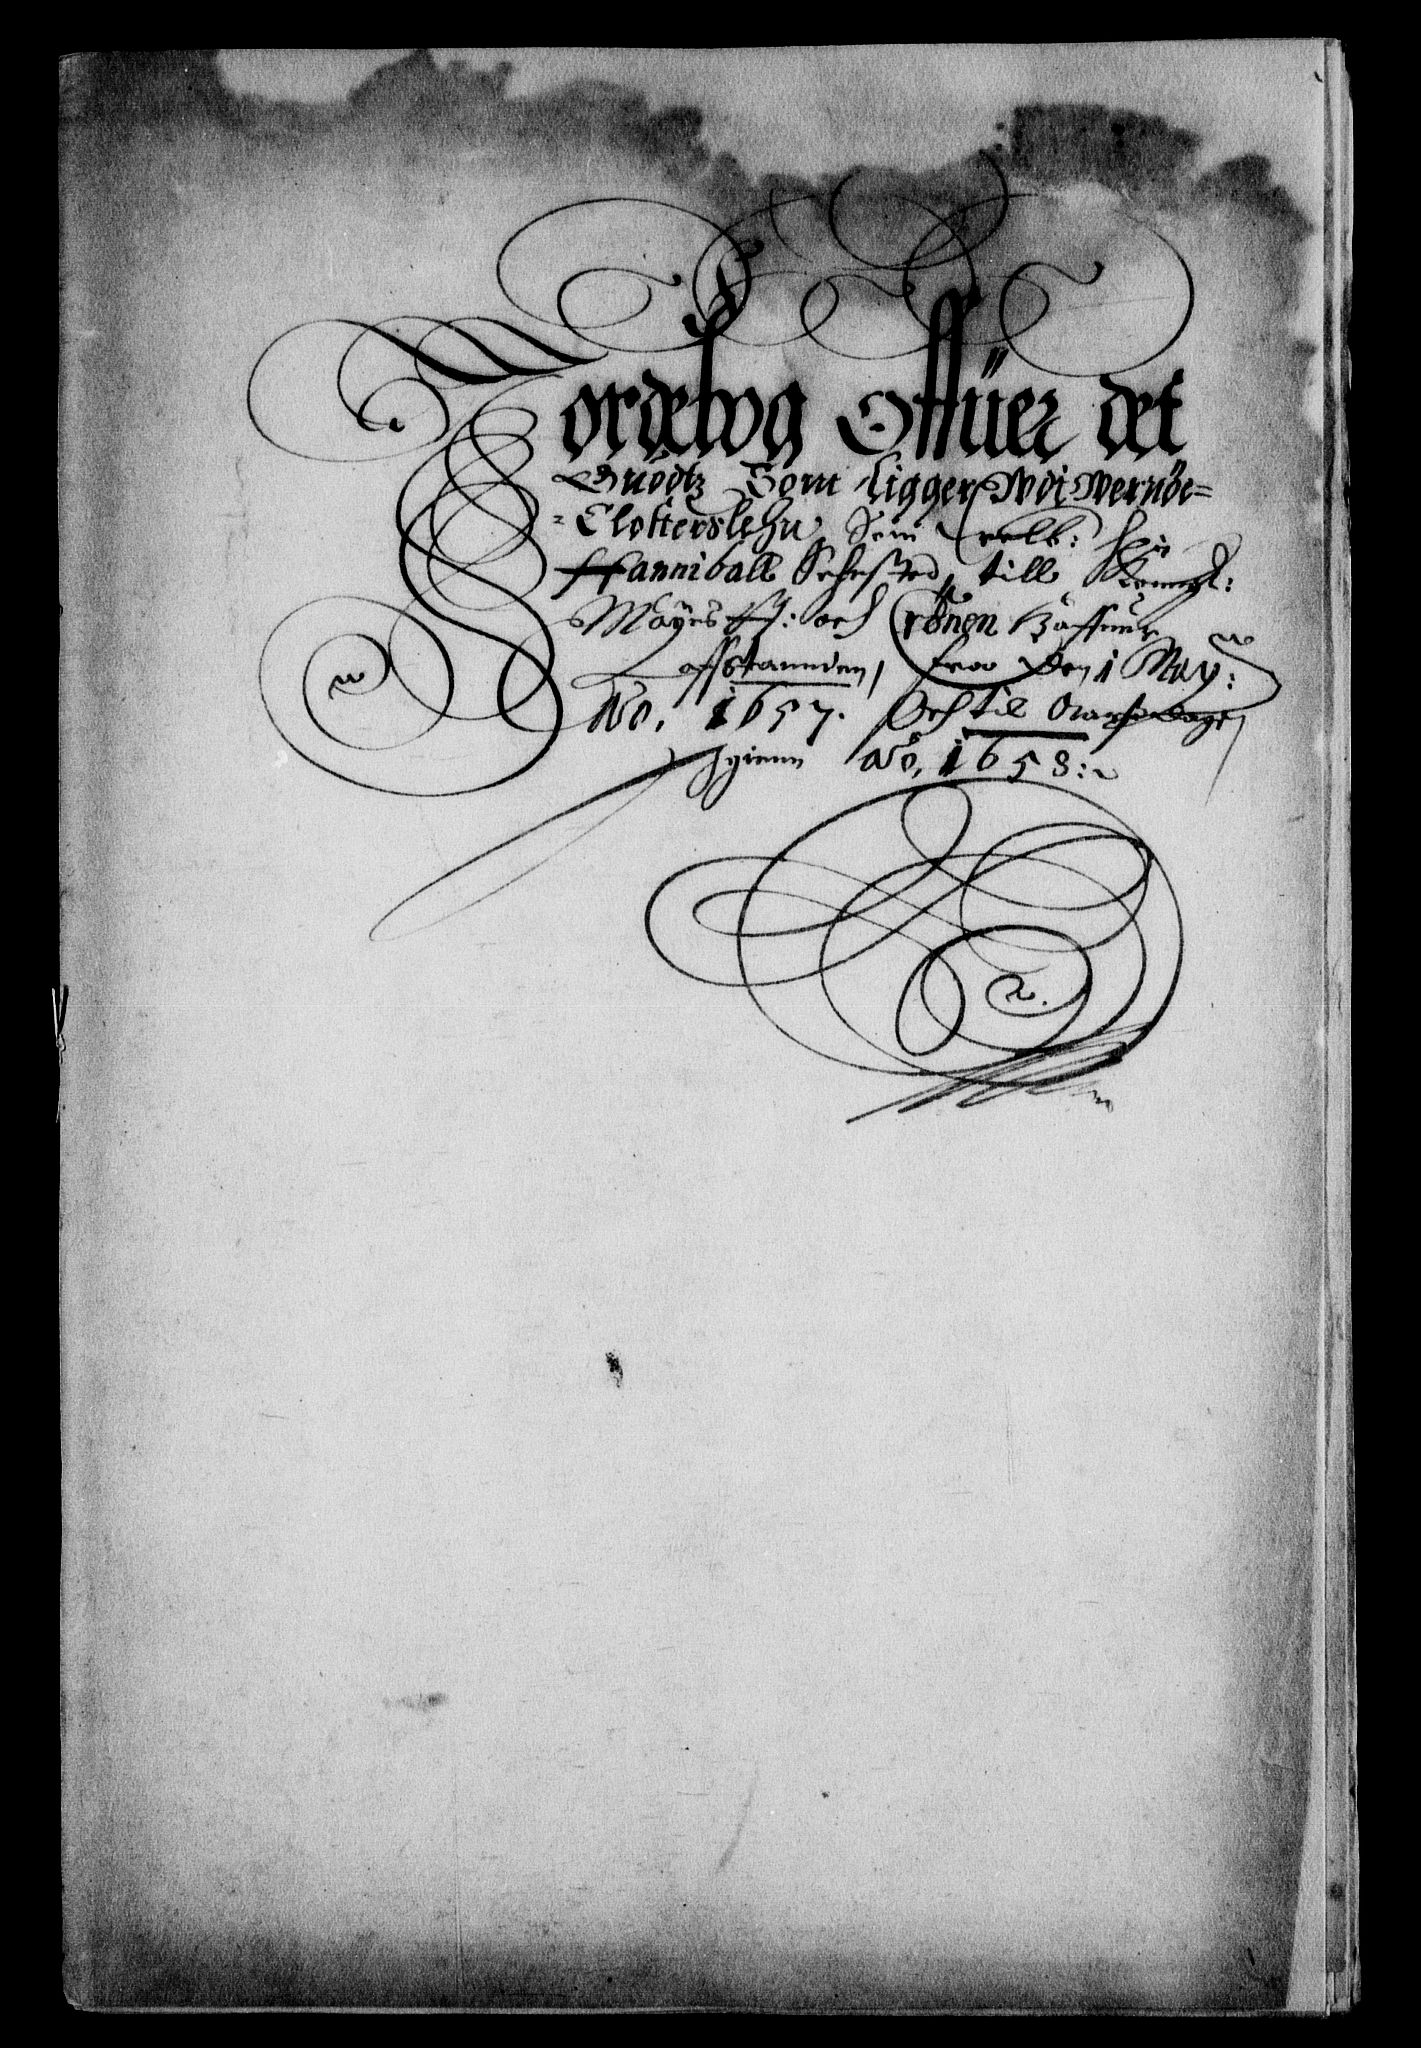 Jordebog Offüer det
Guodtz Som Ligger Udi Wernöe=
=Closterslehn, Som velb: Her
Hanniball Sehested, till Kongl:
Mayes tt: och Cronen Haffuer
affstannden, fraa den 1 May:
Ao. 1657. Och til Aarsdagen
Igienn Ao. 1658: